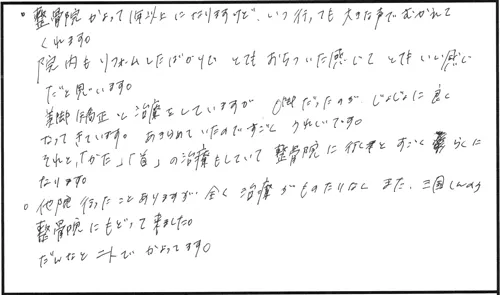 。整骨院 かよって1年以上になりますけど、いつ行っても大きな声でむかえて
くれます。
院内もリフォームしたばかりで とてもおちついた感じで とてもいい感じ
だと思います。
美脚矯正と治療をしていますが O脚だったのが じょじょに良く
なってきています。あきらめていたのですごく うれしいです。
それと、「かた」「首」の治療もしていて 整骨院に行くと すごく らくに
なります。
。他院 行ったことありますが 全く 治療が ものたりなく また、三国しんみち
整骨院にもどって来ました。
だんなと 二人で かよってます。